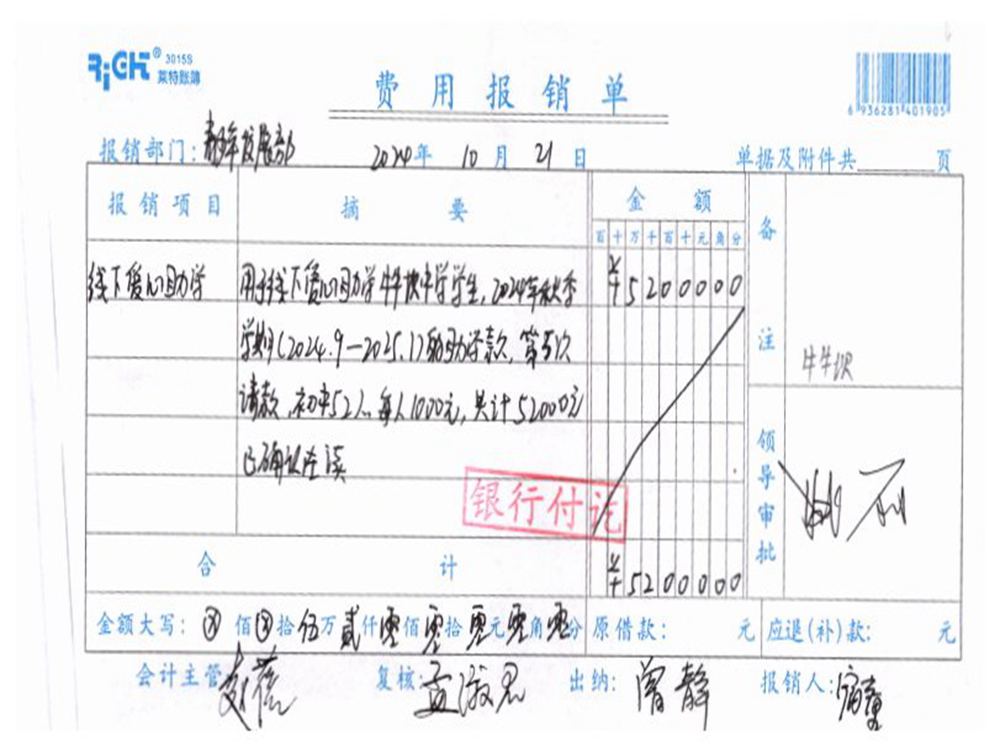 RiGHT® 3015S
莱特账簿
费用报销单
6 936281 401905
报销部门: 教育发展部 2024年 10月 21日 单据及附件共 页
报销项目 摘要 金额 备注
百十万千百十元角分
线下爱心助学 用于线下爱心助学牛牛坝中学学生,2024年秋季 ¥5200000
学期(2024.9—2025.1)的助学款,第5次
请款,初中52人,每人1000元,共计52000元
已确认在读
牛牛坝
银行付讫
领导审批
合计 ¥5200000
金额大写: ⊗佰⊗拾伍万贰仟零佰零拾零元零角零分 原借款: 元 应退(补)款: 元
会计主管 复核: 孟淑思 出纳: 曾静 报销人: